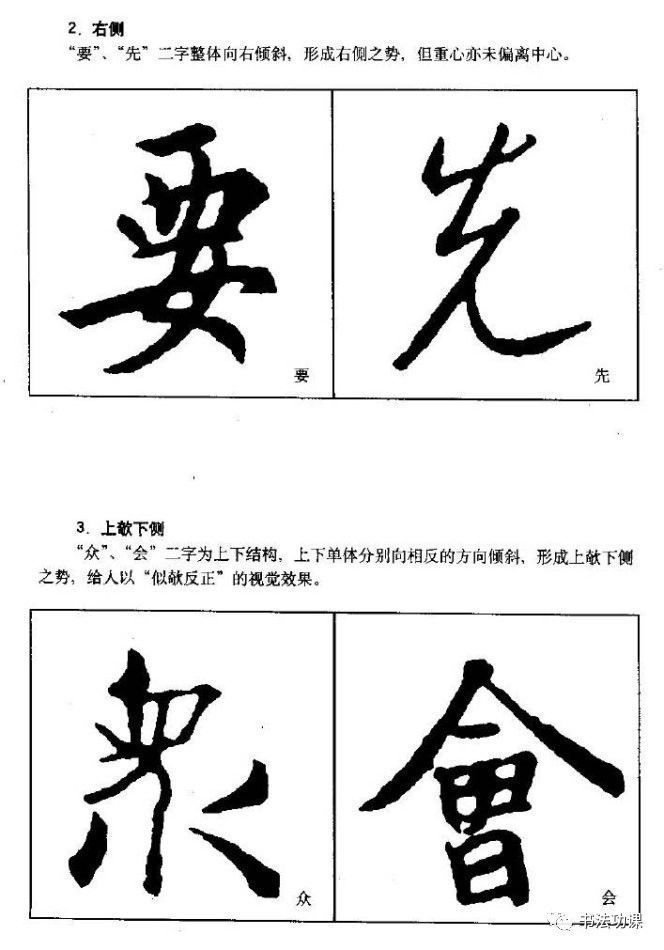 2. 右侧
“要”、“先”二字整体向右倾斜，形成右侧之势，但重心亦未偏离中心。
要 先
要 先
3. 上欹下侧
“众”、“会”二字为上下结构，上下单体分别向相反的方向倾斜，形成上欹下侧
之势，给人以“似欹反正”的视觉效果。
眾 會
众 会
书法功课